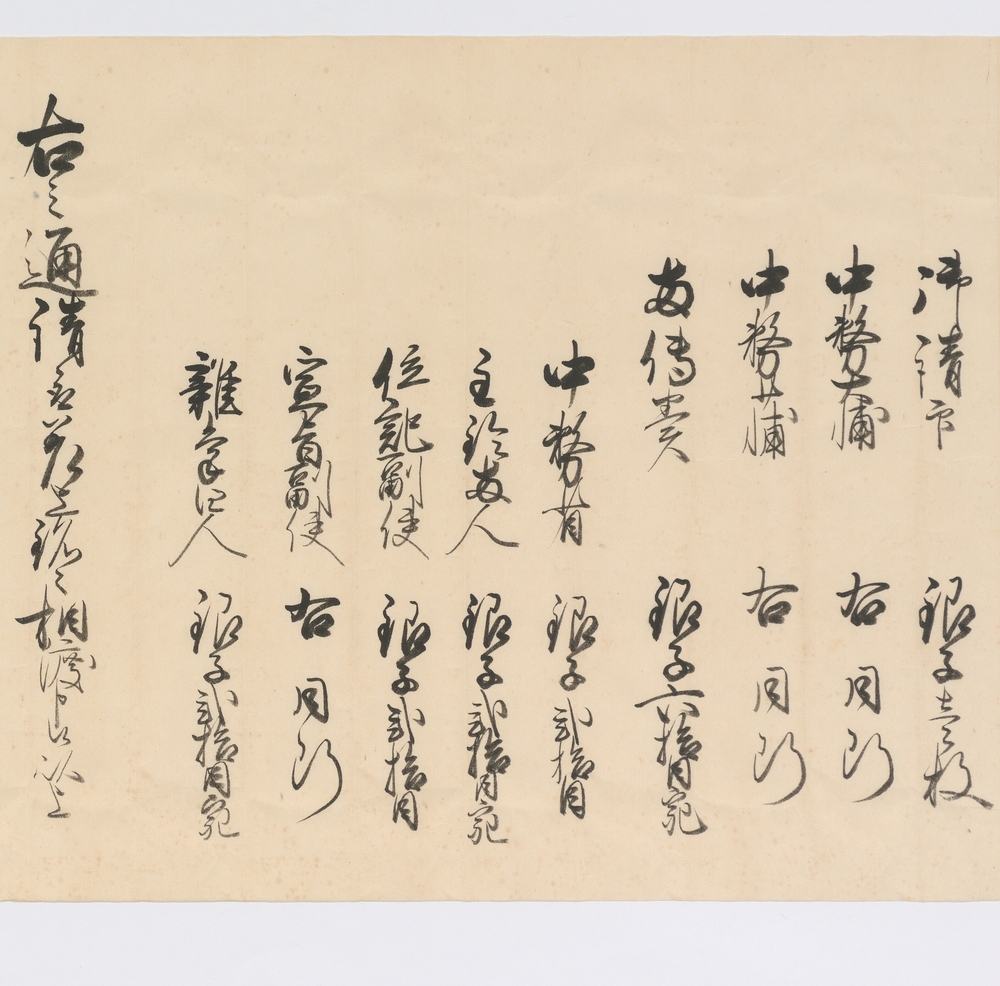 御請印 銀子壱枚
中務大輔 右同断
中務少輔 右同断
両伝奏 銀子六拾目宛
中務省 銀子弐拾目
主鈴両人 銀子弐拾目宛
位記副使 銀子弐拾目
宣旨副使 右同断
雑掌四人 銀子弐拾目宛
右之通請 相渡 以上